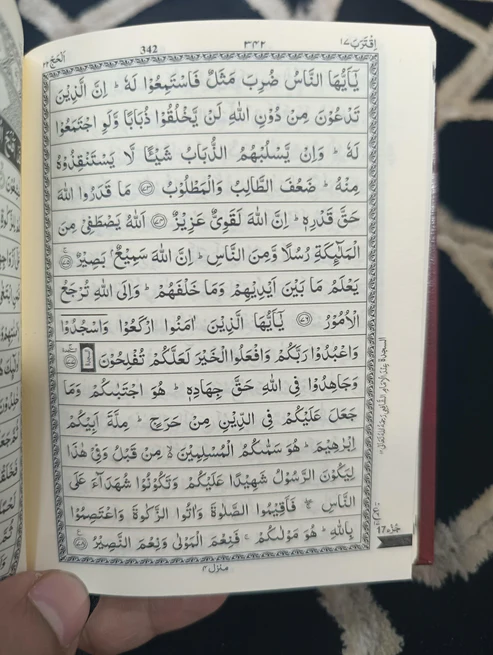 اِقْتَرَبَ ١٧
٣٤٢
342
اَلْحَجّ ٢٢
يٰۤاَيُّهَا النَّاسُ ضُرِبَ مَثَلٌ فَاسْتَمِعُوْا لَهٗ ؕ اِنَّ الَّذِيْنَ
تَدْعُوْنَ مِنْ دُوْنِ اللّٰهِ لَنْ يَّخْلُقُوْا ذُبَابًا وَّلَوِ اجْتَمَعُوْا
لَهٗ ؕ وَاِنْ يَّسْلُبْهُمُ الذُّبَابُ شَيْـًٔا لَّا يَسْتَنْقِذُوْهُ
مِنْهُ ؕ ضَعُفَ الطَّالِبُ وَالْمَطْلُوْبُ ﴿٧٣﴾ مَا قَدَرُوا اللّٰهَ
حَقَّ قَدْرِهٖ ؕ اِنَّ اللّٰهَ لَقَوِىٌّ عَزِيْزٌ ﴿٧٤﴾ اَللّٰهُ يَصْطَفِىْ مِنَ
الْمَلٰٓئِكَةِ رُسُلًا وَّمِنَ النَّاسِ ؕ اِنَّ اللّٰهَ سَمِيْعٌۢ بَصِيْرٌ ﴿٧٥﴾
يَعْلَمُ مَا بَيْنَ اَيْدِيْهِمْ وَمَا خَلْفَهُمْ ؕ وَاِلَى اللّٰهِ تُرْجَعُ
الْاُمُوْرُ ﴿٧٦﴾ يٰۤاَيُّهَا الَّذِيْنَ اٰمَنُوا ارْكَعُوْا وَاسْجُدُوْا
وَاعْبُدُوْا رَبَّكُمْ وَافْعَلُوا الْخَيْرَ لَعَلَّكُمْ تُفْلِحُوْنَ ﴿٧٧﴾
وَجَاهِدُوْا فِى اللّٰهِ حَقَّ جِهَادِهٖ ؕ هُوَ اجْتَبٰىكُمْ وَمَا
جَعَلَ عَلَيْكُمْ فِى الدِّيْنِ مِنْ حَرَجٍ ؕ مِلَّةَ اَبِيْكُمْ
اِبْرٰهِيْمَ ؕ هُوَ سَمّٰىكُمُ الْمُسْلِمِيْنَ ۙ مِنْ قَبْلُ وَفِىْ هٰذَا
لِيَكُوْنَ الرَّسُوْلُ شَهِيْدًا عَلَيْكُمْ وَتَكُوْنُوْا شُهَدَآءَ عَلَى
النَّاسِ ۖۚ فَاَقِيْمُوا الصَّلٰوةَ وَاٰتُوا الزَّكٰوةَ وَاعْتَصِمُوْا
بِاللّٰهِ ؕ هُوَ مَوْلٰىكُمْ ۚ فَنِعْمَ الْمَوْلٰى وَنِعْمَ النَّصِيْرُ ﴿٧٨﴾
جزء 17
منزل ٤